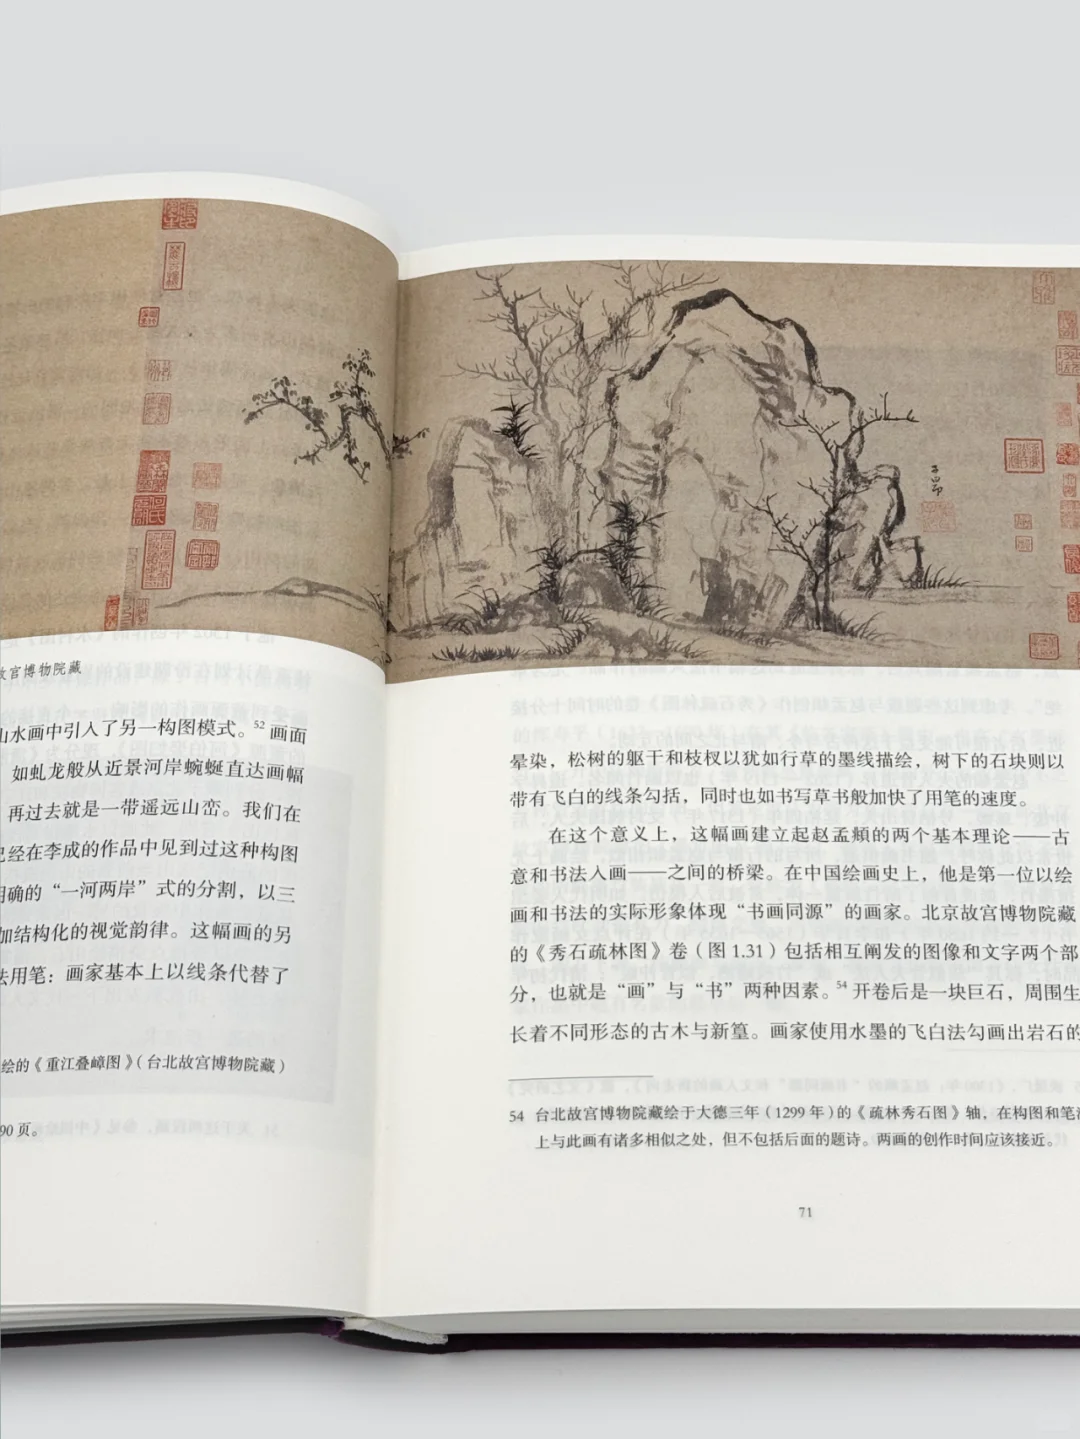 故宫博物院藏
山水画中引入了另一构图模式。52 画面
如虬龙般从近景河岸蜿蜒直达画幅
再过去就是一带遥远山峦。我们在
已经在李成的作品中见到过这种构图
明确的“一河两岸”式的分割，以三
加结构化的视觉韵律。这幅画的另
法用笔：画家基本上以线条代替了
绘的《重江叠嶂图》（台北故宫博物院藏）
90 页。
子昂
晕染，松树的躯干和枝杈以犹如行草的墨线描绘，树下的石块则以
带有飞白的线条勾括，同时也如书写草书般加快了用笔的速度。
在这个意义上，这幅画建立起赵孟頫的两个基本理论——古
意和书法入画——之间的桥梁。在中国绘画史上，他是第一位以绘
画和书法的实际形象体现“书画同源”的画家。北京故宫博物院藏
的《秀石疏林图》卷（图 1.31）包括相互阐发的图像和文字两个部
分，也就是“画”与“书”两种因素。54 开卷后是一块巨石，周围生
长着不同形态的古木与新篁。画家使用水墨的飞白法勾画出岩石的
54 台北故宫博物院藏绘于大德三年（1299 年）的《疏林秀石图》轴，在构图和笔法
上与此画有诸多相似之处，但不包括后面的题诗。两画的创作时间应该接近。
71